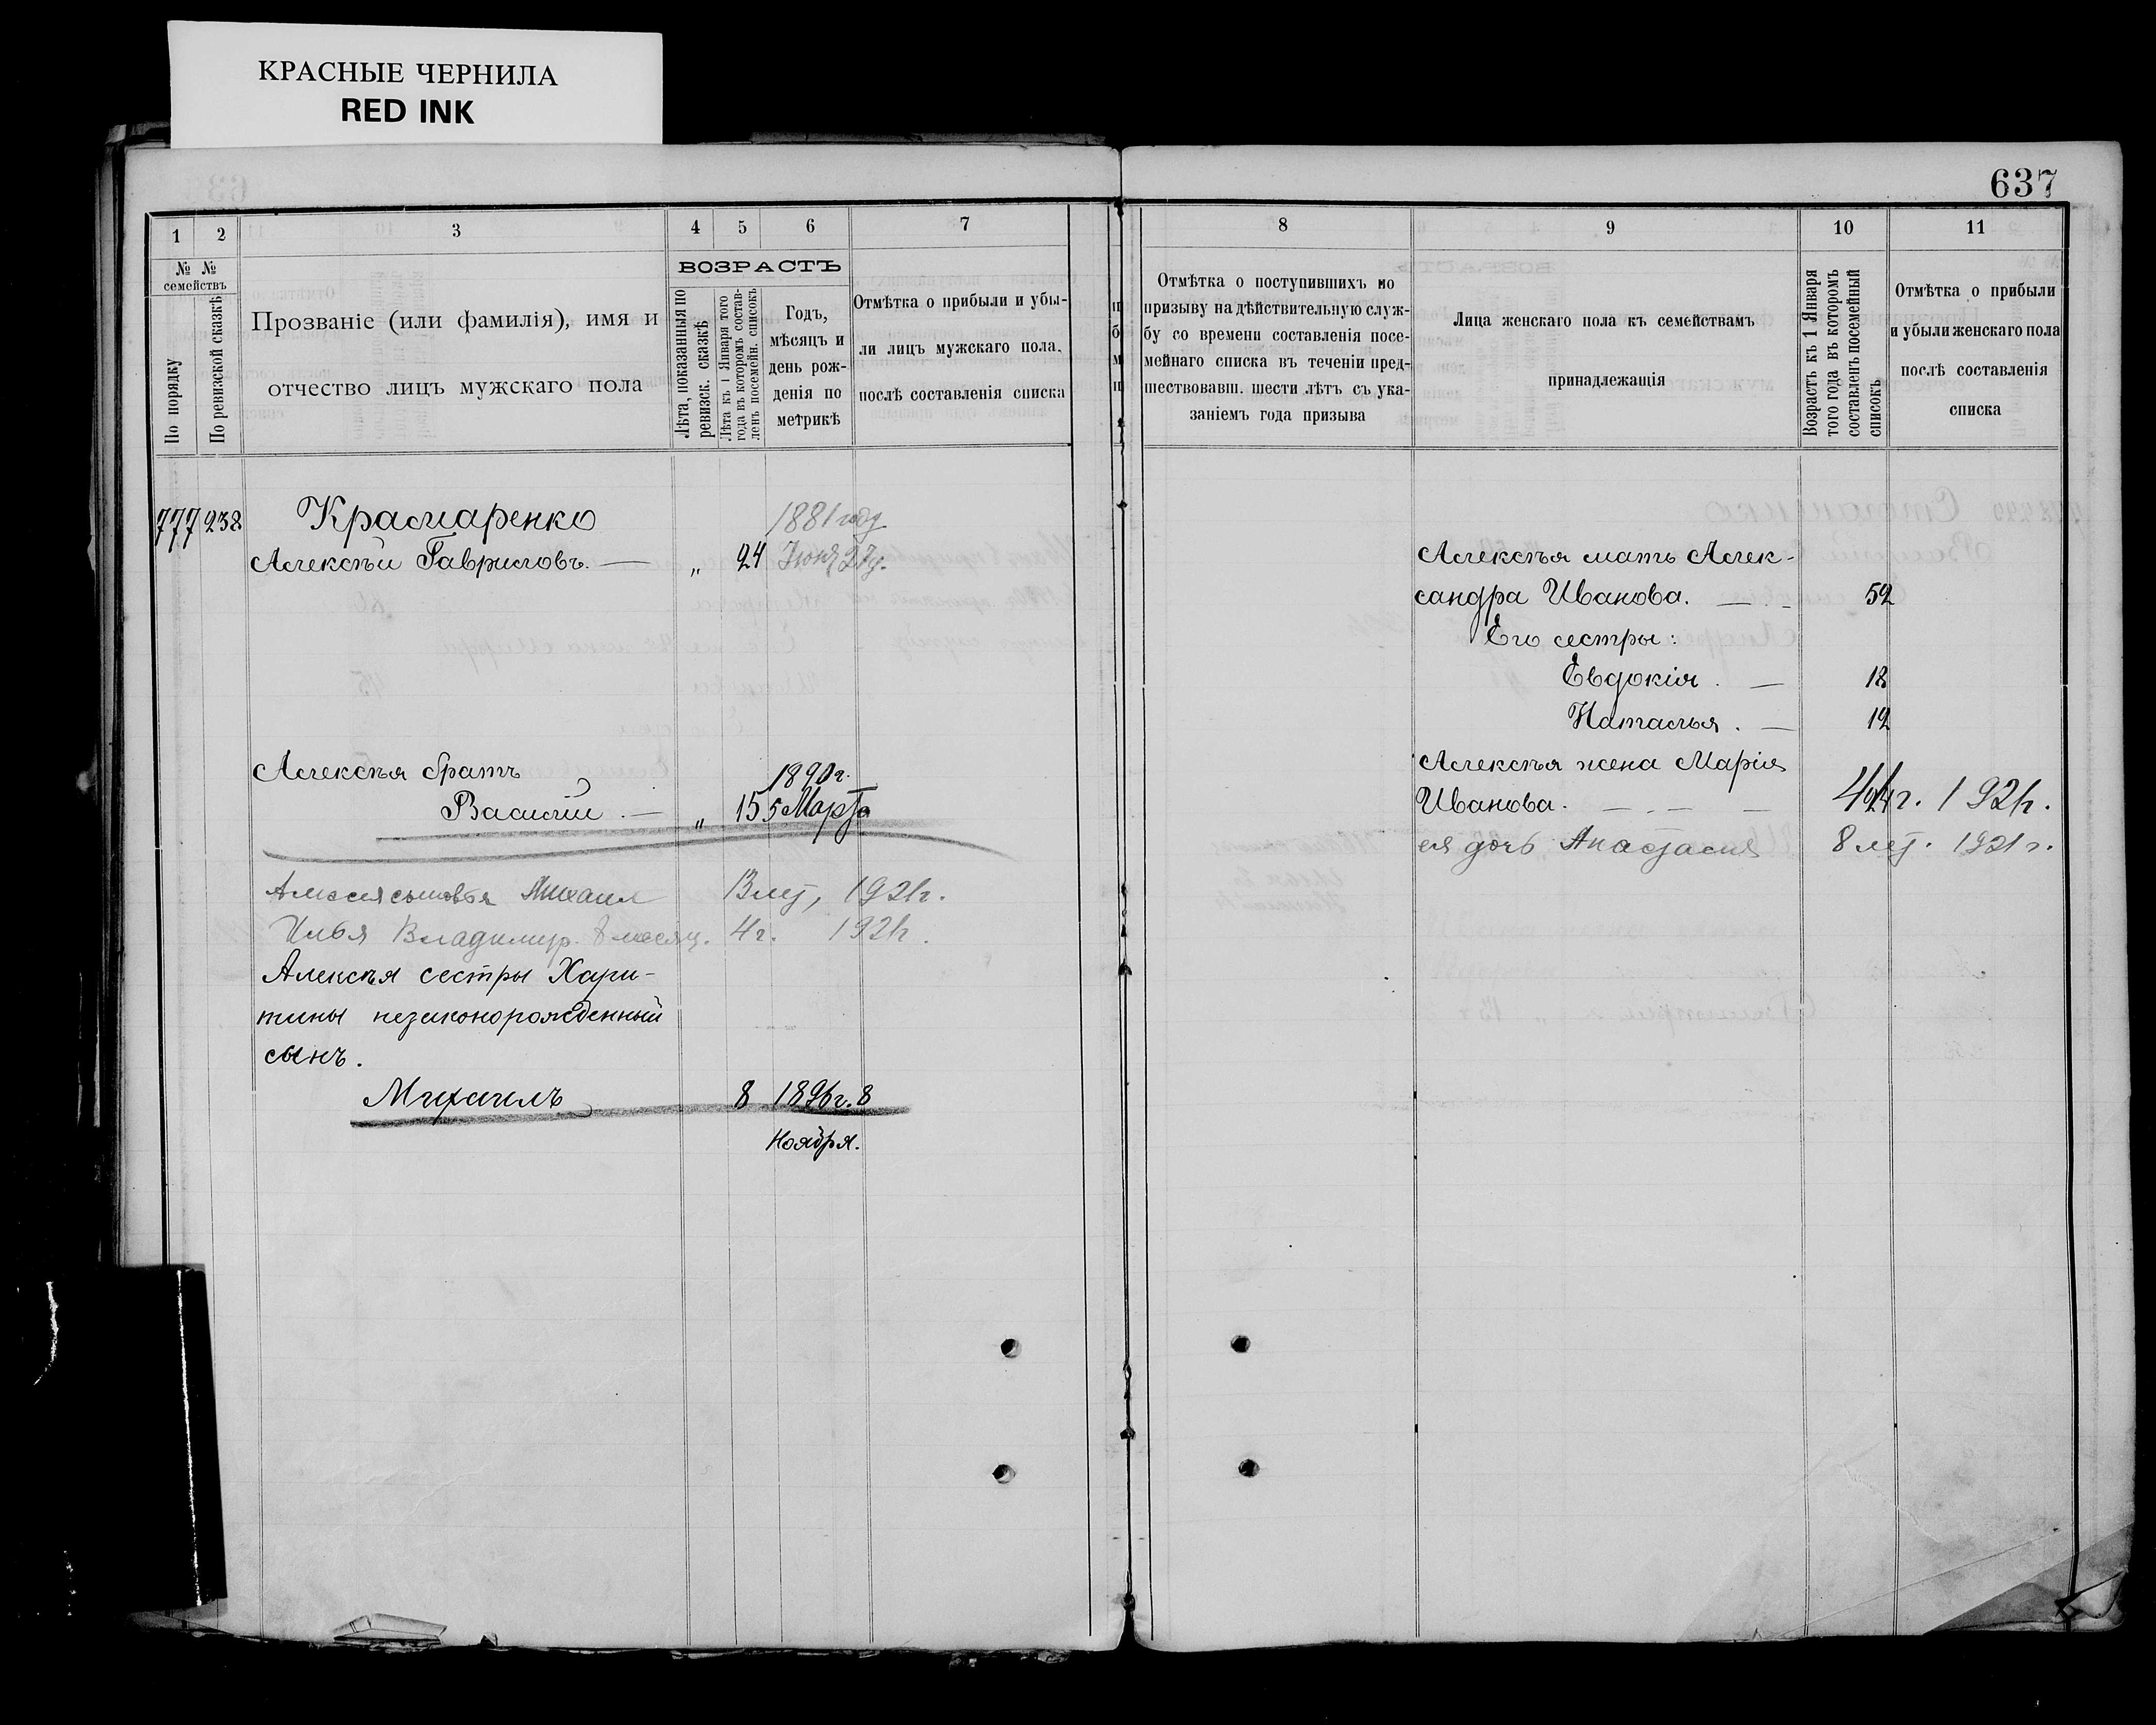 КРАСНЫЕ ЧЕРНИЛА
RED INK
637
1 2 3 4 5 6 7
№ № семействъ
По порядку
По ревизской сказкѣ
Прозваніе (или фамилія), имя и
отчество лицъ мужскаго пола
ВОЗРАСТЪ
Лѣта, показанныя по
ревизск. сказкѣ
Лѣта къ 1 Января того
года въ которомъ состав-
ленъ посемейн. списокъ
Годъ,
мѣсяцъ и
день рож-
денія по
метрикѣ
Отмѣтка о прибыли и убы-
ли лицъ мужскаго пола,
послѣ составленія списка
777 238 Красnаренко 1881 году
Алексѣй Гавриловъ. — „ 24 Іюня 27 д.
Алексѣя братъ 1890 г.
Василій. — „ 15 5 Марта
сыновья Михаил 13 лет, 1921 г.
Илья Владимир. 8 месяц. 4 г. 1921 г.
Алексѣя сестры Хари-
тины незаконорожденный
сынъ.
Михаилъ 8 1896 г. 8
Ноября.
8 9 10 11
Отмѣтка о поступившихъ по
призыву на дѣйствительную служ-
бу со времени составленія посе-
мейнаго списка въ теченіи пред-
шествовавш. шести лѣтъ съ ука-
заніемъ года призыва
Лица женскаго пола къ семействамъ
принадлежащія
Возрастъ къ 1 Января
того года въ которомъ
составленъ посемейный
списокъ
Отмѣтка о прибыли
и убыли женскаго пола
послѣ составленія
списка
Алексѣя мать Алек-
сандра Иванова. — 52
Его сестры:
Евдокія. — 18
Наталья. — 12
Алексѣя жена Марія
Иванова. — 1921 г.
ея дочь Анастасия 8 лет. 1921 г.